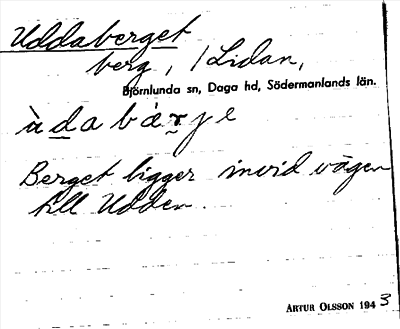 Uddaberget
berg, / Lidan,
Björnlunda sn, Daga hd, Södermanlands län.
ùda bàrje
Berget ligger invid vägen
till Udden.
ARTUR OLSSON 1943